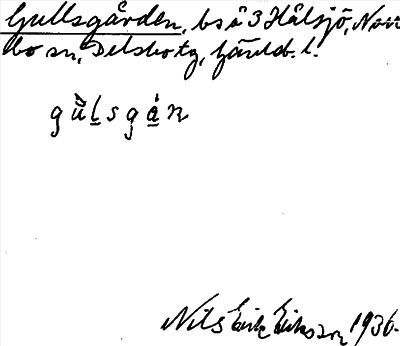 Gullsgården, bs å 3 Hålsjö, Norr
bo sn, Delsbo tg, Gävleb. l.
gùlsgán
Nils Erik Eriksson 1936.